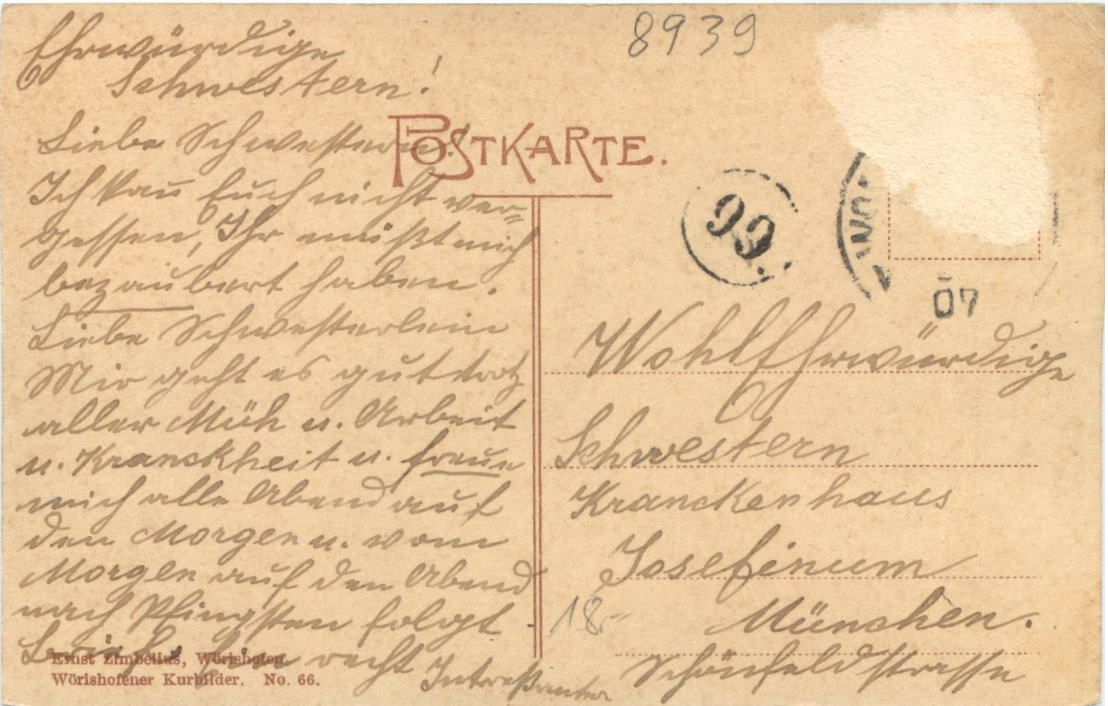 8939
Ehrwürdige
Schwestern!
POSTKARTE.
Liebe Schwestern!
Ich kan̄ Euch nicht ver-
gessen, Ihr müßt mich
bezaubert haben.
Liebe Schwesterlein
Mir geht es gut trotz
aller Müh u. Arbeit
u. Kranckheit u. freue
mich alle Abend auf
den Morgen u. vom
Morgen auf den Abend
nach Pfingsten folgt
recht
Intreßanter
Ernst Zimbelius, Wörishofen.
Wörishofener Kurbilder. No. 66.
99.
07
WohlEhrwürdige
Schwestern
Kranckenhaus
Josefinum
18.-
München.
Schönfeldstrasse